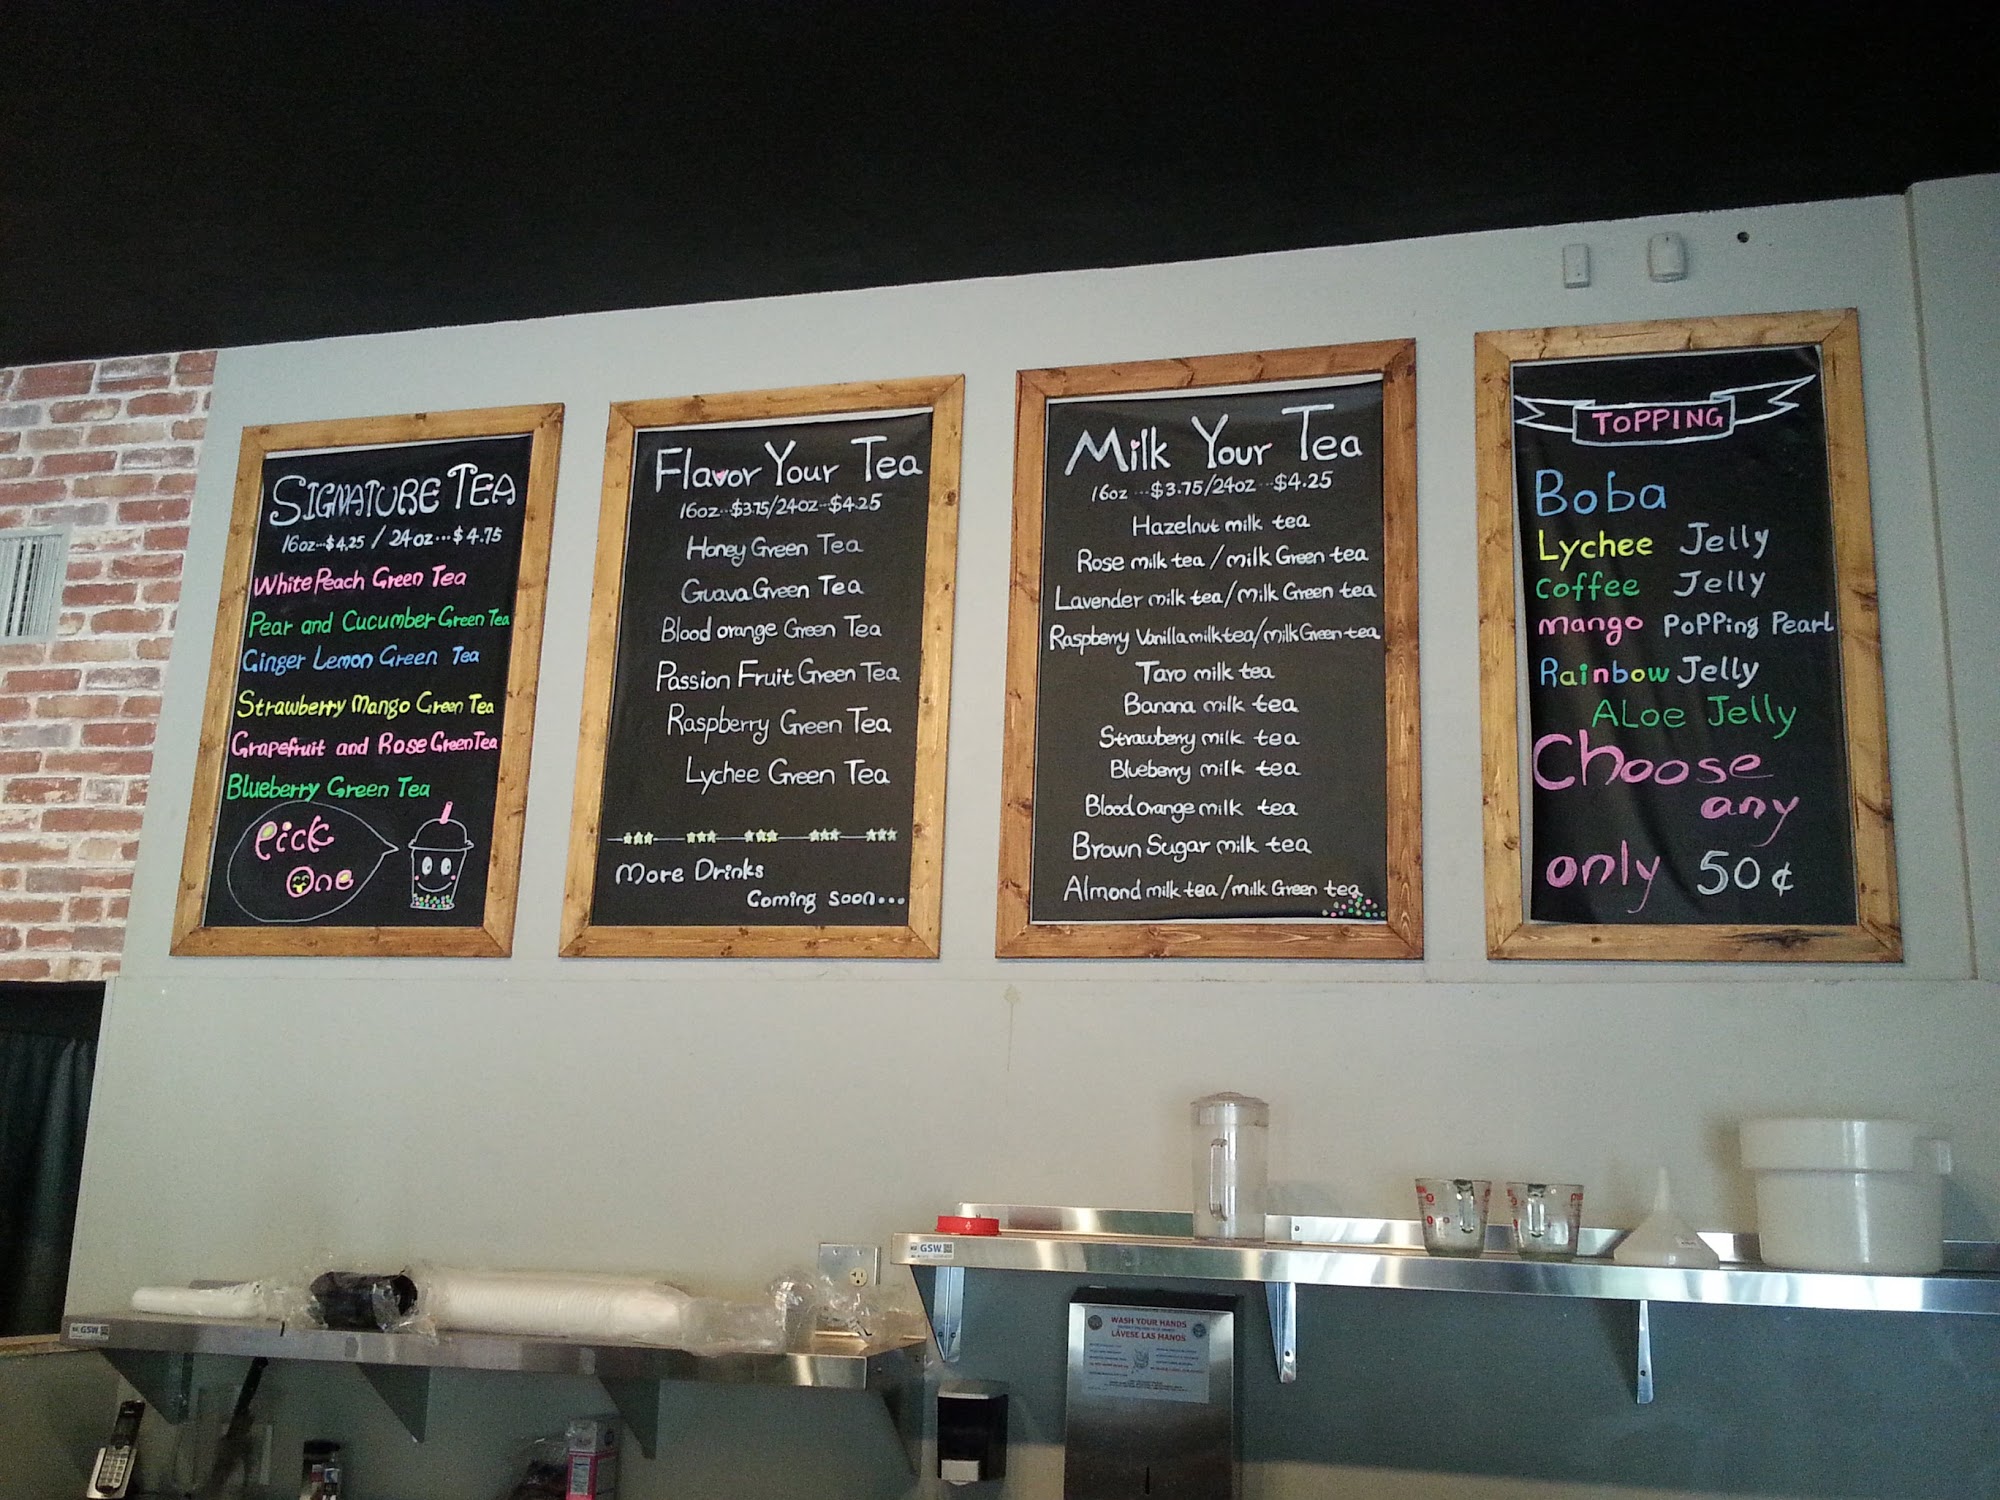 SIGNATURE TEA
16oz...$4.25 / 24oz...$4.75
White Peach Green Tea
Pear and Cucumber Green Tea
Ginger Lemon Green Tea
Strawberry Mango Green Tea
Grapefruit and Rose Green Tea
Blueberry Green Tea
Pick
One
Flavor Your Tea
16oz...$3.75/24oz...$4.25
Honey Green Tea
Guava Green Tea
Blood orange Green Tea
Passion Fruit Green Tea
Raspberry Green Tea
Lychee Green Tea
More Drinks
Coming soon...
Milk Your Tea
16oz...$3.75/24oz...$4.25
Hazelnut milk tea
Rose milk tea / milk Green tea
Lavender milk tea/milk Green tea
Raspberry Vanilla milk tea/milk Green tea
Taro milk tea
Banana milk tea
Strawberry milk tea
Blueberry milk tea
Blood orange milk tea
Brown Sugar milk tea
Almond milk tea/milk Green tea
TOPPING
Boba
Lychee Jelly
Coffee Jelly
mango PoPPing Pearl
Rainbow Jelly
ALoe Jelly
Choose
any
only 50¢
GSW
GSW
WASH YOUR HANDS
LÁVESE LAS MANOS